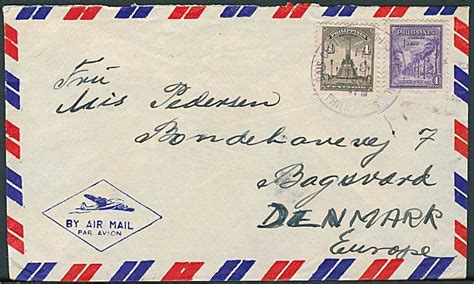 PHILIPPINES
4 4
PHILIPPINES
1
Fru
Mis Pedersen
Bondehavevej 7
Bagsværd
DENMARK
Europe
BY AIR MAIL
PAR AVION